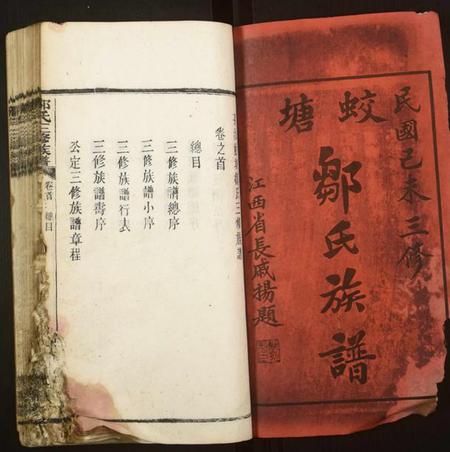 民國己未三修
蛟塘
鄒氏族譜
江西省長戚揚題
卷之首
總目
三修族譜總序
三修族譜小序
三修族譜行表
三修族譜壽序
公定三修族譜章程
鄒氏三修族譜
卷首
總目